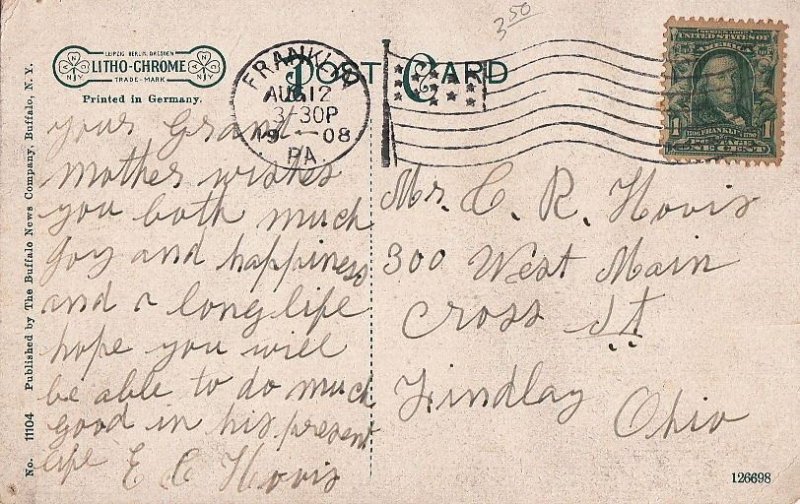 350
LEIPZIG BERLIN DRESDEN
LITHO-CHROME
TRADE-MARK
Printed in Germany.
POST CARD
FRANKLIN
AUG 12
3-30P
1908
PA.
UNITED STATES OF
AMERICA
FRANKLIN
POSTAGE
1 ONE CENT 1
your Grand
Mother wishes
you both much
Joy and happiness
and a long life
hope you will
be able to do much
good in his present
life E C Hovis
Mr. C. R. Hovis
300 West Main
Cross St
Findlay
Ohio
No. 11104 Published by The Buffalo News Company, Buffalo, N. Y.
126698